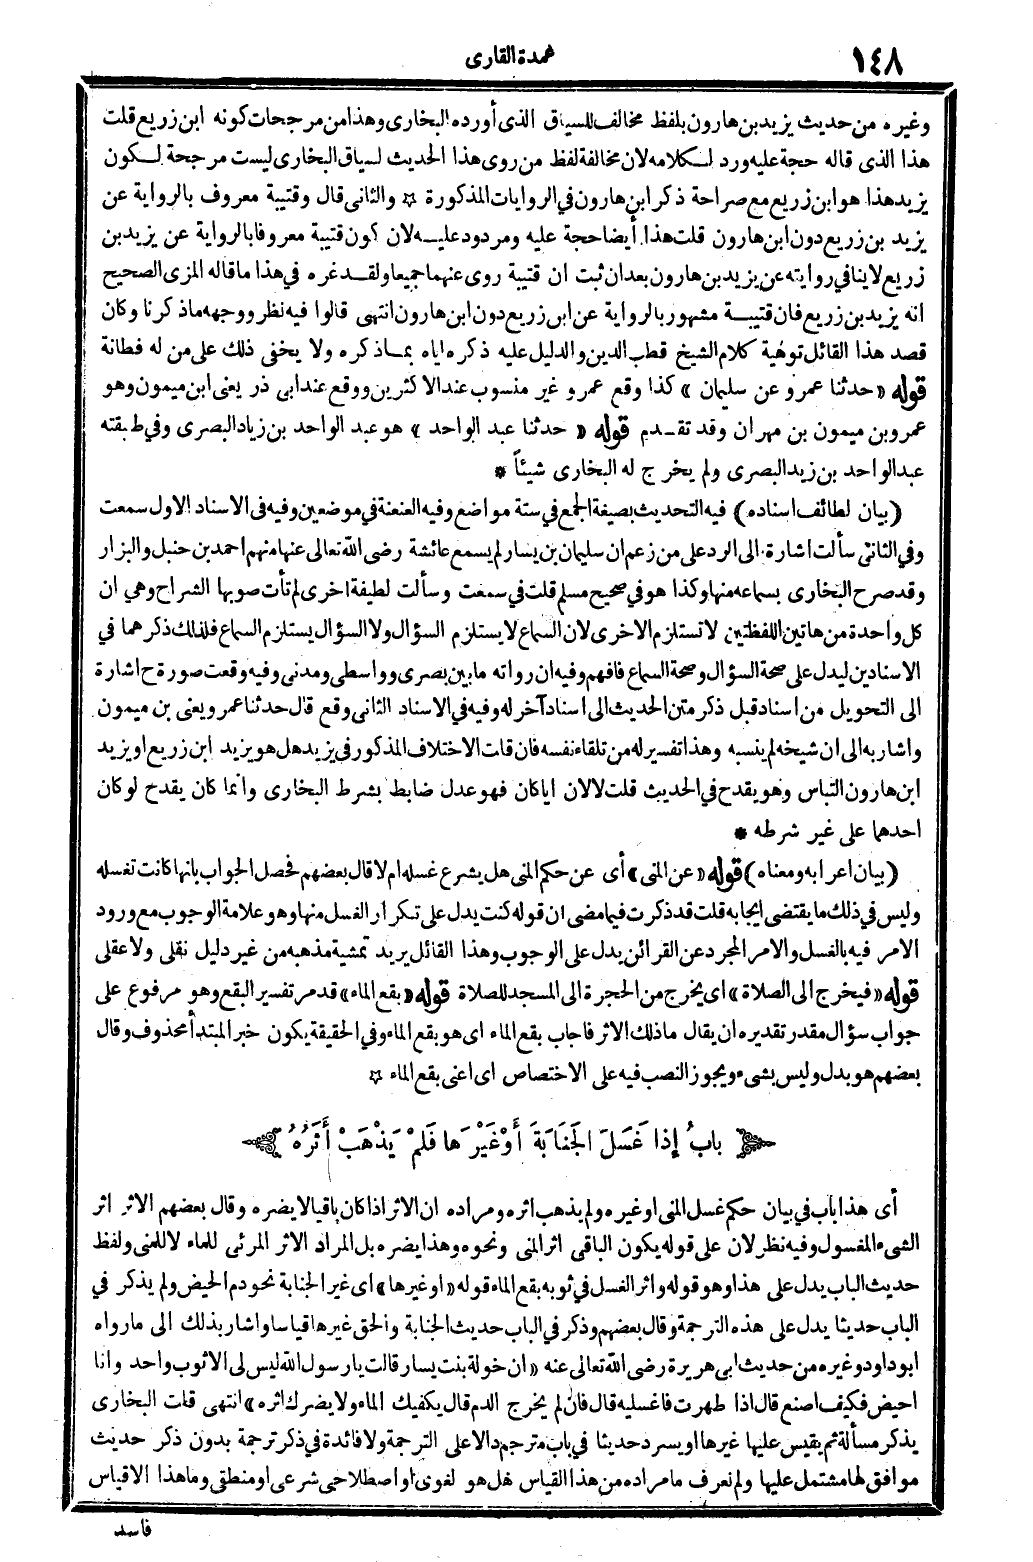 ١٤٨
عمدة القارى
وغيره من حديث يزيد بن هارون بلفظ مخالف للسياق الذى أورده البخارى وهذا من مرجحات كونه ابن زريع قلت
هذا الذى قاله حجة عليه ورد لكلامه لان مخالفة لفظ من روى هذا الحديث لسياق البخارى ليست مرجحة لكون
يزيد هذا هو ابن زريع مع صراحة ذكر ابن هارون في الروايات المذكورة ☆ والثانى قال وقتيبة معروف بالرواية عن
يزيد بن زريع دون ابن هارون قلت هذا أيضا حجة عليه ومردود عليه لان كون قتيبة معروفا بالرواية عن يزيد بن
زريع لاينافي روايته عن يزيد بن هارون بعد ان ثبت ان قتيبة روى عنهما جميعا ولقد غره في هذا ما قاله المزى الصحيح
انه يزيد بن زريع فان قتيبة مشهور بالرواية عن ابن زريع دون ابن هارون انتهى قالوا فيه نظر ووجهه ماذكرنا وكان
قصد هذا القائل توهية كلام الشيخ قطب الدين والدليل عليه ذكره اياه بماذكره ولا يخفى ذلك على من له فطانة
قوله «حدثنا عمرو عن سليمان» كذا وقع عمرو غير منسوب عند الاكثرين ووقع عند ابى ذر يعنى ابن ميمون وهو
عمرو بن ميمون بن مهران وقد تقدم قوله «حدثنا عبد الواحد» هو عبد الواحد بن زياد البصرى وفي طبقته
عبد الواحد بن زيد البصرى ولم يخرج له البخارى شيئاً *
(بيان لطائف اسناده) فيه التحديث بصيغة الجمع في ستة مواضع وفيه العنعنة في موضعين وفيه فى الاسناد الاول سمعت
وفي الثانى سألت اشارة الى الرد على من زعم ان سليمان بن يسار لم يسمع عائشة رضى الله تعالى عنها منهم احمد بن حنبل والبزار
وقد صرح البخارى بسماعه منها وكذا هو في صحيح مسلم قلت في سمعت وسألت لطيفة اخرى لم تأت صوبها الشراح وهي ان
كل واحدة من هاتين اللفظتين لا تستلزم الاخرى لان السماع لا يستلزم السؤال ولا السؤال يستلزم السماع فلذلك ذكرهما في
الاسنادين ليدل على صحة السؤال وصحة السماع فافهم وفيه ان رواته مابين بصرى وواسطى ومدنى وفيه وقعت صورة ح اشارة
الى التحويل من اسناد قبل ذكر متن الحديث الى اسناد آخر له وفيه في الاسناد الثانى وقع قال حدثنا عمرو يعنى بن ميمون
واشار به الى ان شيخه لم ينسبه وهذا تفسير له من تلقاء نفسه فان قلت الاختلاف المذكور في يزيد هل هو يزيد ابن زريع او يزيد
ابن هارون التباس وهو يقدح في الحديث قلت لا لان اياكان فهو عدل ضابط بشرط البخارى وانما كان يقدح لو كان
احدهما على غير شرطه *
(بيان اعرابه ومعناه) قوله «عن المنى» أى عن حكم المنى هل يشرع غسله ام لا قال بعضهم فحصل الجواب بانها كانت تغسله
وليس في ذلك ما يقتضى ايجابه قلت قد ذكرت فيما مضى ان قوله كنت يدل على تكرار الغسل منها وهو علامة الوجوب مع ورود
الامر فيه بالغسل والامر المجرد عن القرائن يدل على الوجوب وهذا القائل يريد تمشية مذهبه من غير دليل نقلى ولا عقلى
قوله «فيخرج الى الصلاة» اى يخرج من الحجرة الى المسجد للصلاة قوله «بقع الماء» قد مر تفسير البقع وهو مرفوع على
جواب سؤال مقدر تقديره ان يقال ما ذلك الاثر فاجاب بقع الماء اى هو بقع الماء وفي الحقيقة يكون خبر المبتدأ محذوف وقال
بعضهم هو بدل وليس بشىء ويجوز النصب فيه على الاختصاص اى اعنى بقع الماء ☆
بابُ إذا غَسَلَ الجَنَابَةَ أَوْ غَيْرَها فَلَمْ يَذْهَبْ أَثَرُهُ
أى هذا باب في بيان حكم غسل المنى او غيره ولم يذهب اثره ومراده ان الاثر اذا كان باقيا لا يضره وقال بعضهم الاثر اثر
الشىء المغسول وفيه نظر لان على قوله يكون الباقى اثر المنى ونحوه وهذا يضره بل المراد الاثر المرئى للماء لا للمنى ولفظ
حديث الباب يدل على هذا وهو قوله واثر الغسل في ثوبه بقع الماء قوله «او غيرها» اى غير الجنابة نحو دم الحيض ولم يذكر في
الباب حديثا يدل على هذه الترجمة وقال بعضهم وذكر في الباب حديث الجنابة والحق غيرها قياسا واشار بذلك الى مارواه
ابو داود وغيره من حديث ابى هريرة رضى الله تعالى عنه «ان خولة بنت يسار قالت يا رسول الله ليس لى الا ثوب واحد وانا
احيض فكيف اصنع قال اذا طهرت فاغسليه قال فان لم يخرج الدم قال يكفيك الماء ولا يضرك اثره» انتهى قلت البخارى
يذكر مسألة ثم يقيس عليها غيرها او يسرد حديثا في باب مترجم دالا على الترجمة ولا فائدة في ذكر ترجمة بدون ذكر حديث
موافق لها مشتمل عليها ولم نعرف ما مراده من هذا القياس هل هو لغوى او اصطلاحى شرعى او منطقى وما هذا الاقياس
فاسد